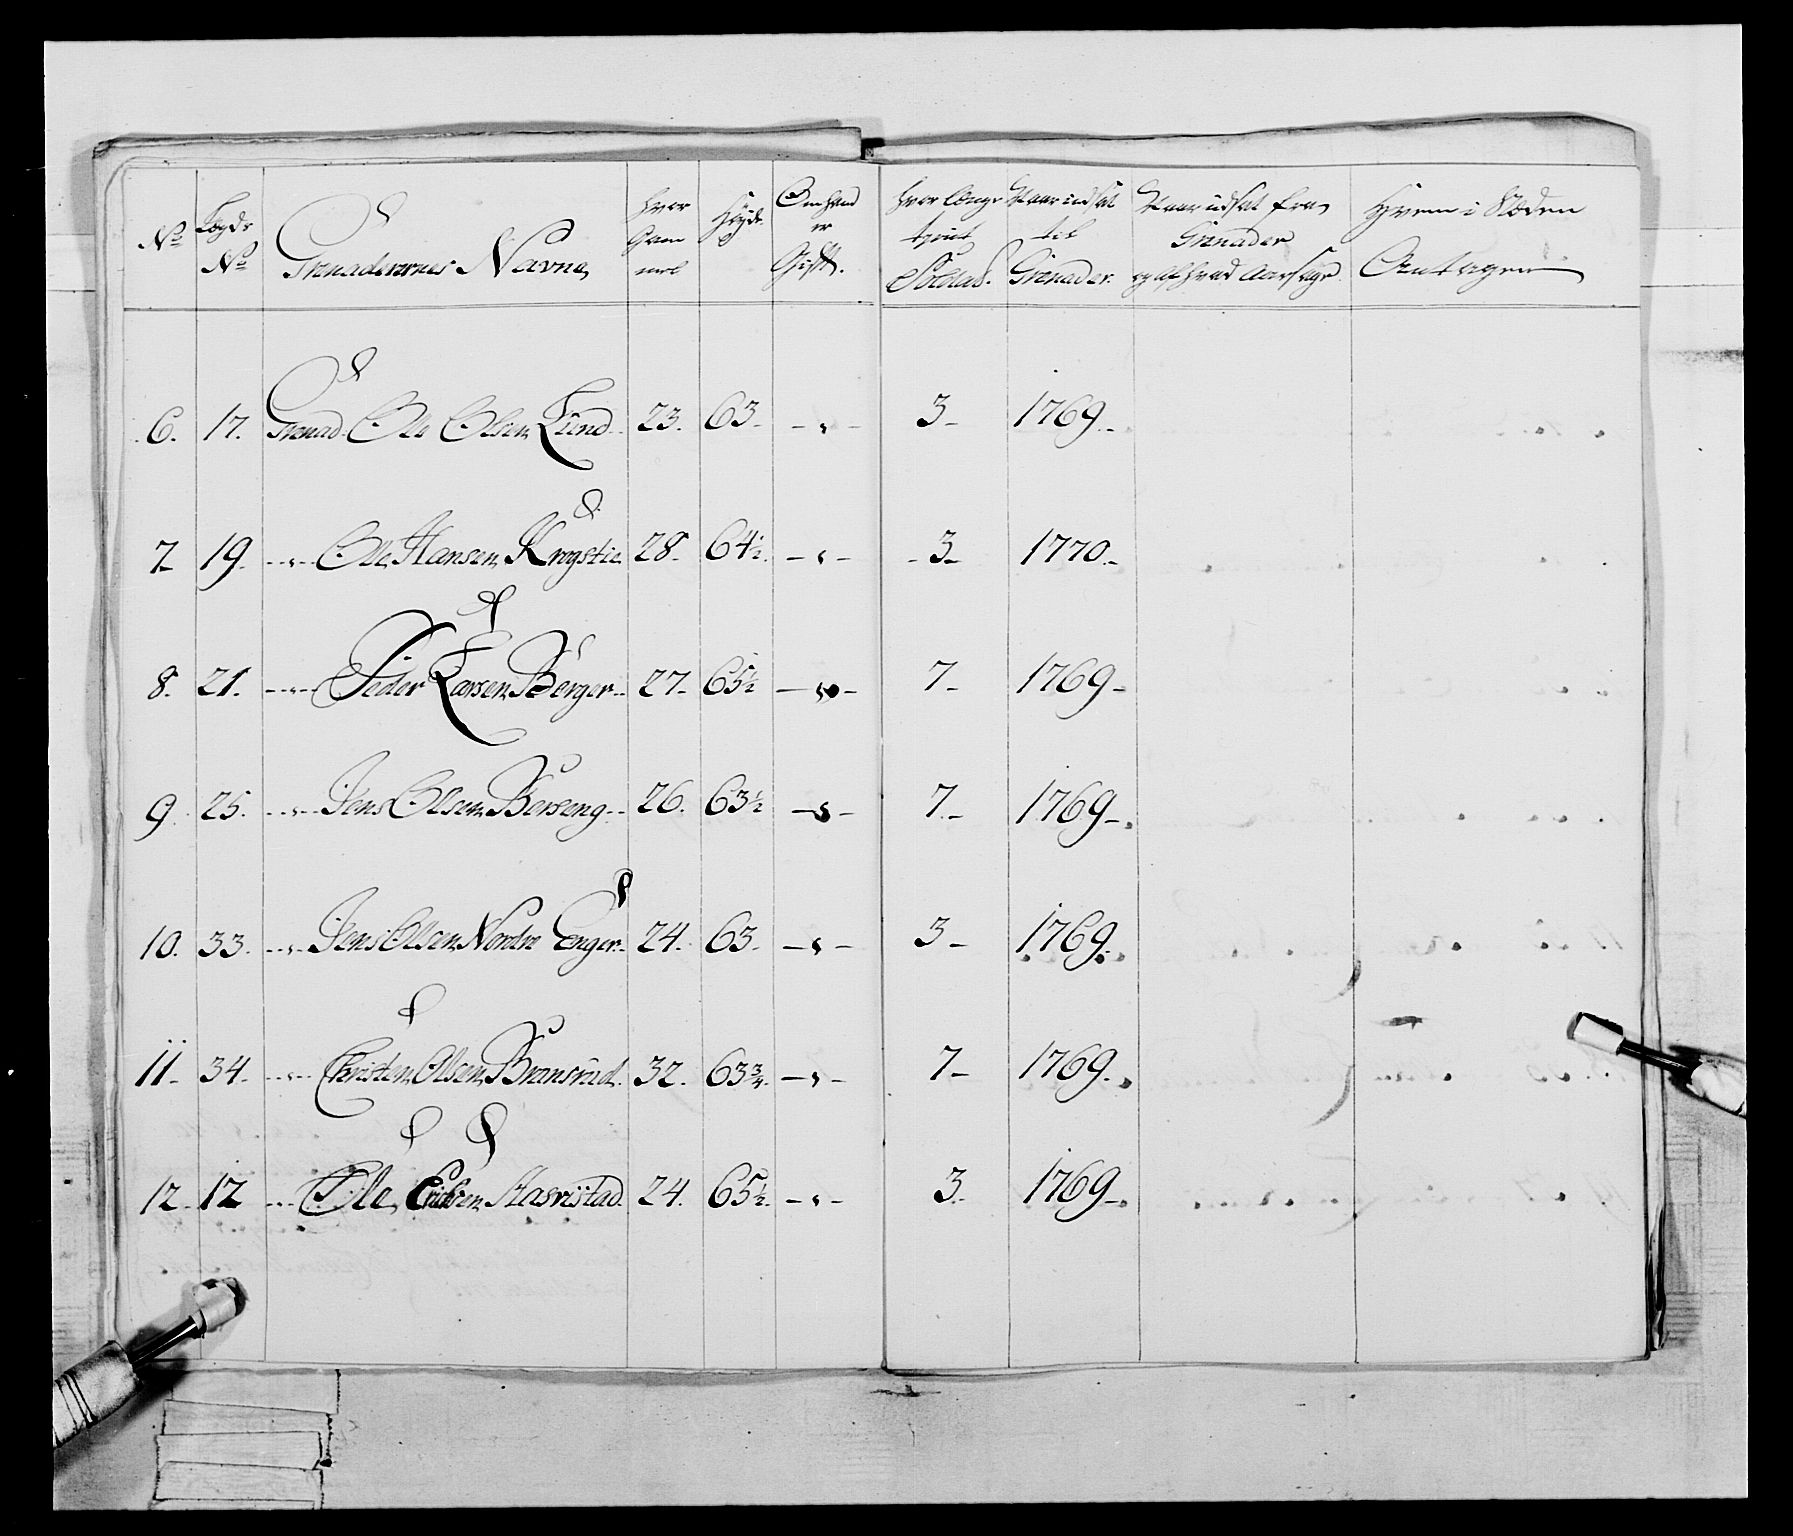 No
Lægds No
Grenaderernes Navne
Hvor Gammel
Høyde
Om hand er Gift.
Hvor længe tjent Soldat.
Naar indsat til Grenader.
Naar udsat fra Grenader og af hvad Aarsage
Hvem i Stæden Antagen
6. 17. Grenad. Ole Olsen Lund 23. 63 - " - 3 - 1769. -
7 - 19. - " - Ole Hansen Krogstie 28 - 64½. - " - - 3 - 1770. -
8. 21. - " - Peder Larsen Berger - 27 - 65½ - " - 7 - 1769 -
9. 25. - " - Jens Olsen Berseng - 26. 63½ - " - 7. - 1769 -
10. 33. - " - Jens Olsen Nordre Enger - 24. 63. - " - 3 - 1769.
11 - 34. - " - Christen Olsen Bransrud. 32. 63¾. - " - 7 - 1769. -
12. 12 - " - Ole Erichsen 24. 65½. - " - 3. - 1769 -